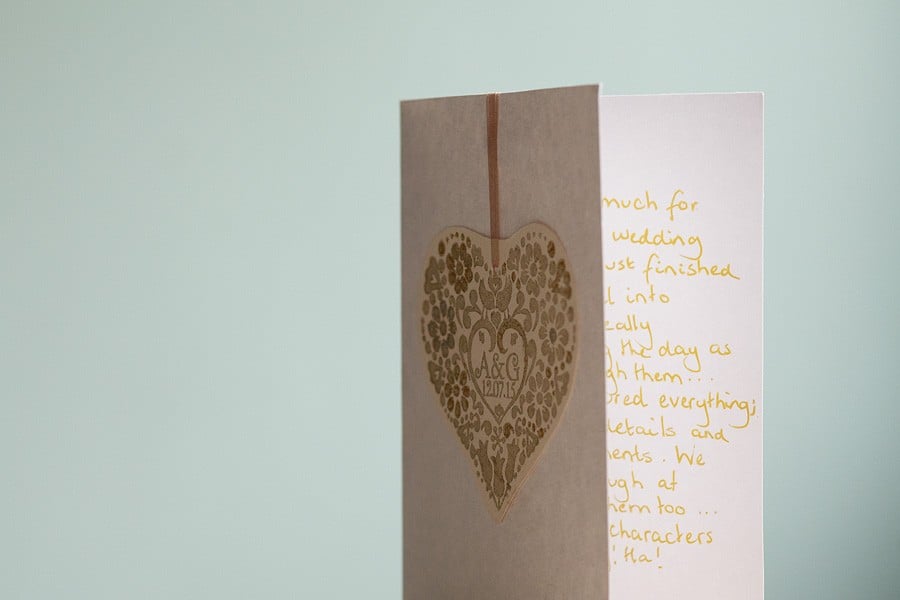 A&G
12.07.15
much for
wedding
ust finished
l into
eally
g the day as
gh them...
ured everything;
details and
ents. We
ugh at
hem too...
characters
! Ha!